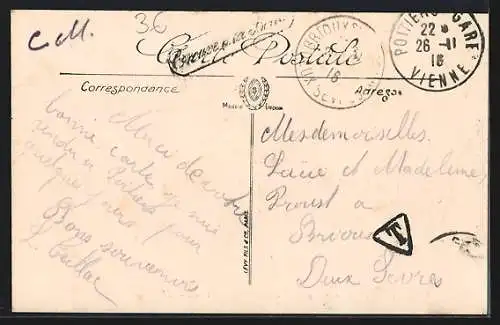 C.M.
36
Carte Postale
POITIERS GARE
22
26 - 11
16
VIENNE
16
Correspondance
Adresse
LÉVY FILS & CIE, PARIS
Merci de votre
bonne carte je suis
rendu à Poitiers
quelques jours pour
Bons souvenirs
Mesdemoiselles
Laure et Madeleine
Proust a
Brioux
Deux Sèvres
T